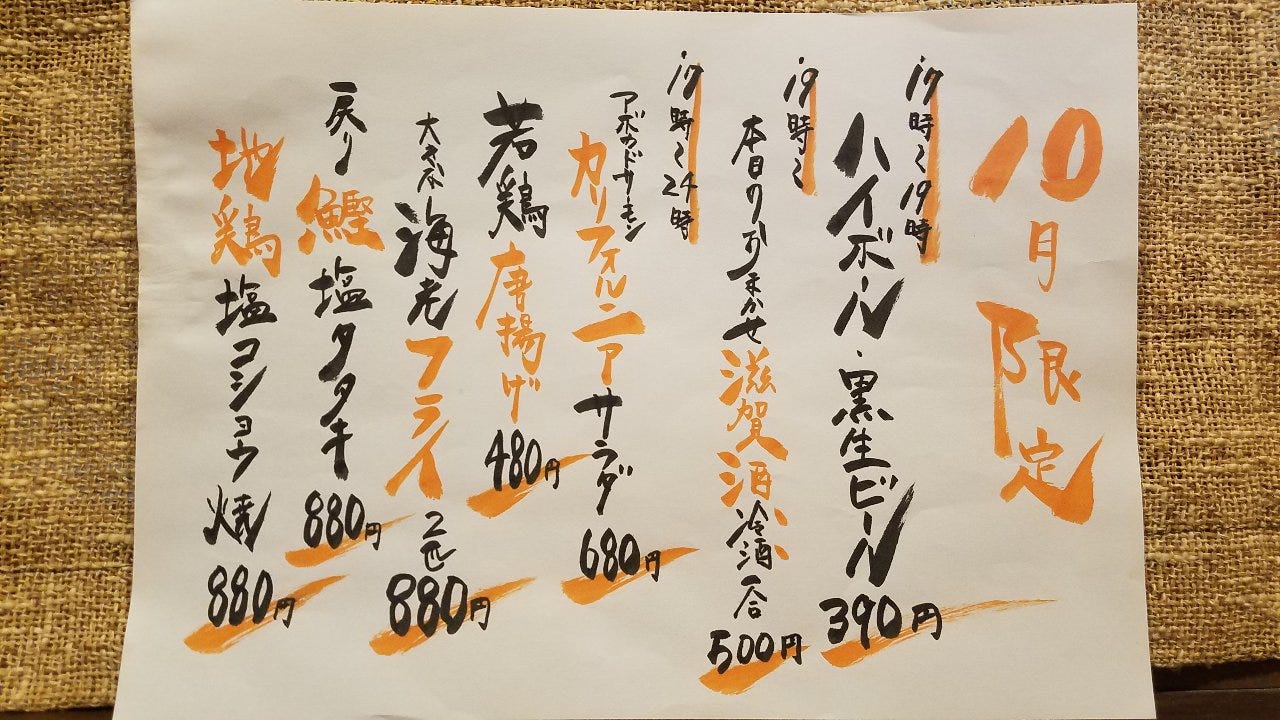 10月限定
17時〜19時
ハイボール・黒生ビール 390円
19時〜
本日のおまかせ 滋賀酒 冷酒 一合 500円
17時〜24時
アボカドサーモン
カリフォルニアサラダ 680円
若鶏 唐揚げ 480円
大きな海老フライ 2匹 880円
戻り鰹塩タタキ 880円
地鶏塩コショウ焼 880円